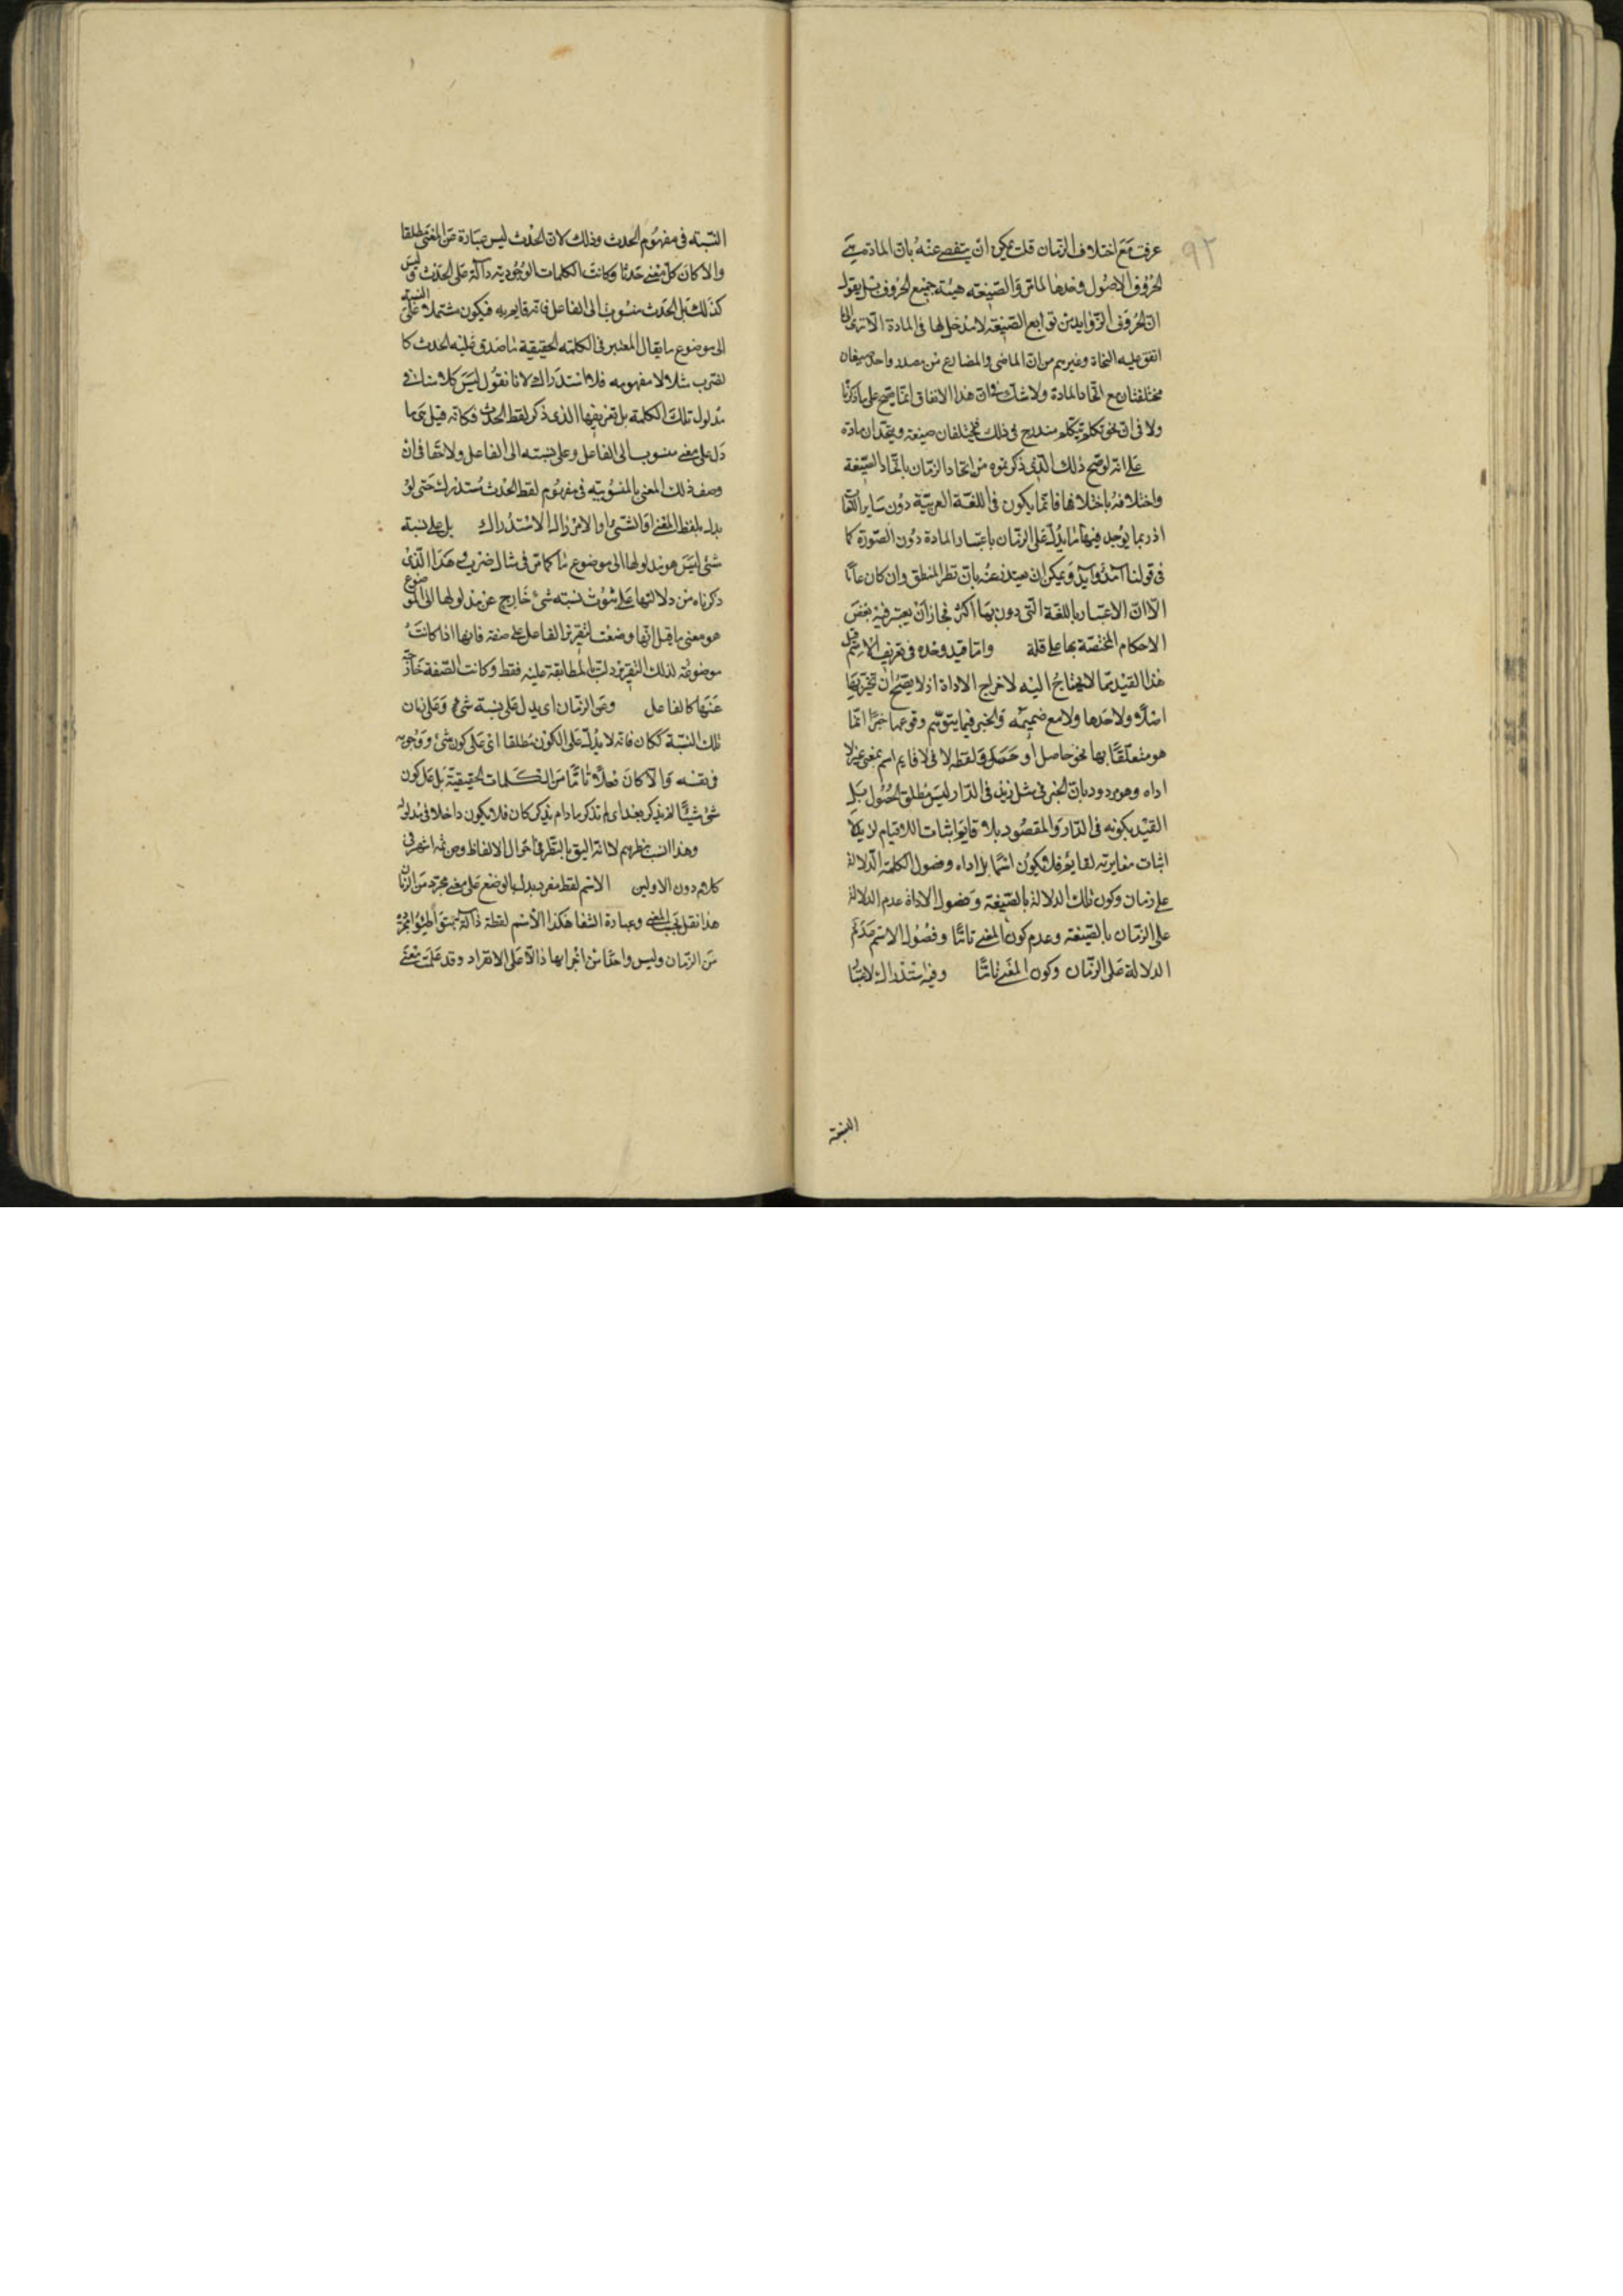 ٩٢
عرفت مع اختلاف الزمان قلت يمكن ان يتفصى عنه بان المادة هي
الحروف الاصول وحدها لما مر والصيغه هيئة جميع الحروف بل يقول
ان الحروف الزوايد من توابع الصيغة لا مدخل لها في المادة الا ترى الى ما
اتفق عليه النحاة وغيرهم من ان الماضي والمضارع من مصدر واحد صيغتان
مختلفتان مع اتحاد المادة ولا شك في ان هذا الاتفاق انما يصح على ما ذكرنا
ولا في ان نحو تكلم يتكلم مندرج في ذلك فيختلفان صيغة ويتحدان مادة
على انه لو صح ذلك الذي ذكرتموه من اتحاد الزمان باتحاد الصيغة
واختلافه باختلافها فانما يكون في اللغة العربية دون ساير اللغات
اذ ربما يوجد فيها ما يدل على الزمان باعتبار المادة دون الصورة كما
في قولنا آمد وآيد ويمكن ان يعتذر عنه بان نظر المنطق وان كان عاما
الا ان الاعتبار باللغة التي دون بها اكثر فجاز ان يعتبر فيه بعض
الاحكام المختصة بها على قلة واما قيد وحده في تعريف الاسم قيل
هذا القيد مما لا يحتاج اليه لاخراج الاداة اذ لا يصح ان تخبر بها
اصلا ولا حدها ولا مع ضميمه والخبر فيما يتوهم وقوعها خبرا انما
هو متعلقا بها نحو حاصل او حصل ولفظه لا في لا قايم اسم بمعنى غير لا
اداه وهو مردود بان الخبر في مثل زيد في الدار ليس مطلق الحصول بل
القيد بكونه في الدار والمقصود بلا قايم اثبات اللاقيام لزيد لا
اثبات مغايرته لقايم فلا يكون اسما بل اداه وفصول الكلمة الدلالة
على زمان وكون تلك الدلالة بالصيغة وفصول الاداة عدم الدلالة
على الزمان بالصيغة وعدم كون المعنى تاما وفصول الاسم عدم
الدلالة على الزمان وكون المعنى تاما وفيه استدراك لاعتبار
النسبة
النسبته في مفهوم الحدث وذلك لان الحدث ليس عبارة عن المعنى مطلقا
والا كان كل معنى حدثا وكانت الكلمات الوجودية دالة على الحدث وليس
كذلك بل الحدث منسوب الى الفاعل فانه قايم به فيكون مشتملا على النسبة
الى موضوع ما يقال المعتبر في الكلمه الحقيقية ما صدق عليه الحدث كا
لضرب مثلا لا مفهومه فلا استدراك لانا نقول ليس كلامنا في
مدلول تلك الكلمه بل تعريفها الذي ذكر لفظ الحدث فكانه قيل هي ما
دل على معنى منسوب الى الفاعل وعلى نسبته الى الفاعل ولا خفا في ان
وصف ذلك المعنى بالمنسوبيه في مفهوم لفظ الحدث مستدرك حتى لو
بدله بلفظ المعنى او الشيئ او الامر زال الاستدراك بل على نسبة
شئ ليس هو مدلولها الى موضوع ما كما مر في مثال ضرب وهذا الذي
ذكرناه من دلالتها على ثبوت نسبته شئ خارج عن مدلولها الى الموضوع
هو معنى ما قيل انها وضعت لتقرير الفاعل على صفة فانها اذا كانت
موضوعة لذلك التقرير دلت بالمطابقة عليه فقط وكانت الصفة خارجة
عنها كالفاعل وعن الزمان اى يدل على نسبة شئ وعلى زمان
تلك النسبة ككان فانه لا يدل على الكون مطلقا اى على كون شئ ووجوده
في نفسه والا كان فعلا تاما من الكلمات الحقيقية بل على كون
شئ شيئا لم يذكر بعد اى لم تذكر مادام يذكر كان فلا يكون داخلا في مدلوله
وهذا انسب بنظرهم لا انه اليق بالنظر في احوال الالفاظ ومن ثمه اشتهر في
كلامه دون الاولين الاسم لفظ مفرد يدل بالوضع على معنى مجرد من الزمان
هذا نقل بحسب المعنى وعبارة الشفا هكذا الاسم لفظة دالة بتواطؤ مجردة
من الزمان وليس واحدا من اجزايها دالا على الانفراد وقد علمت معنى